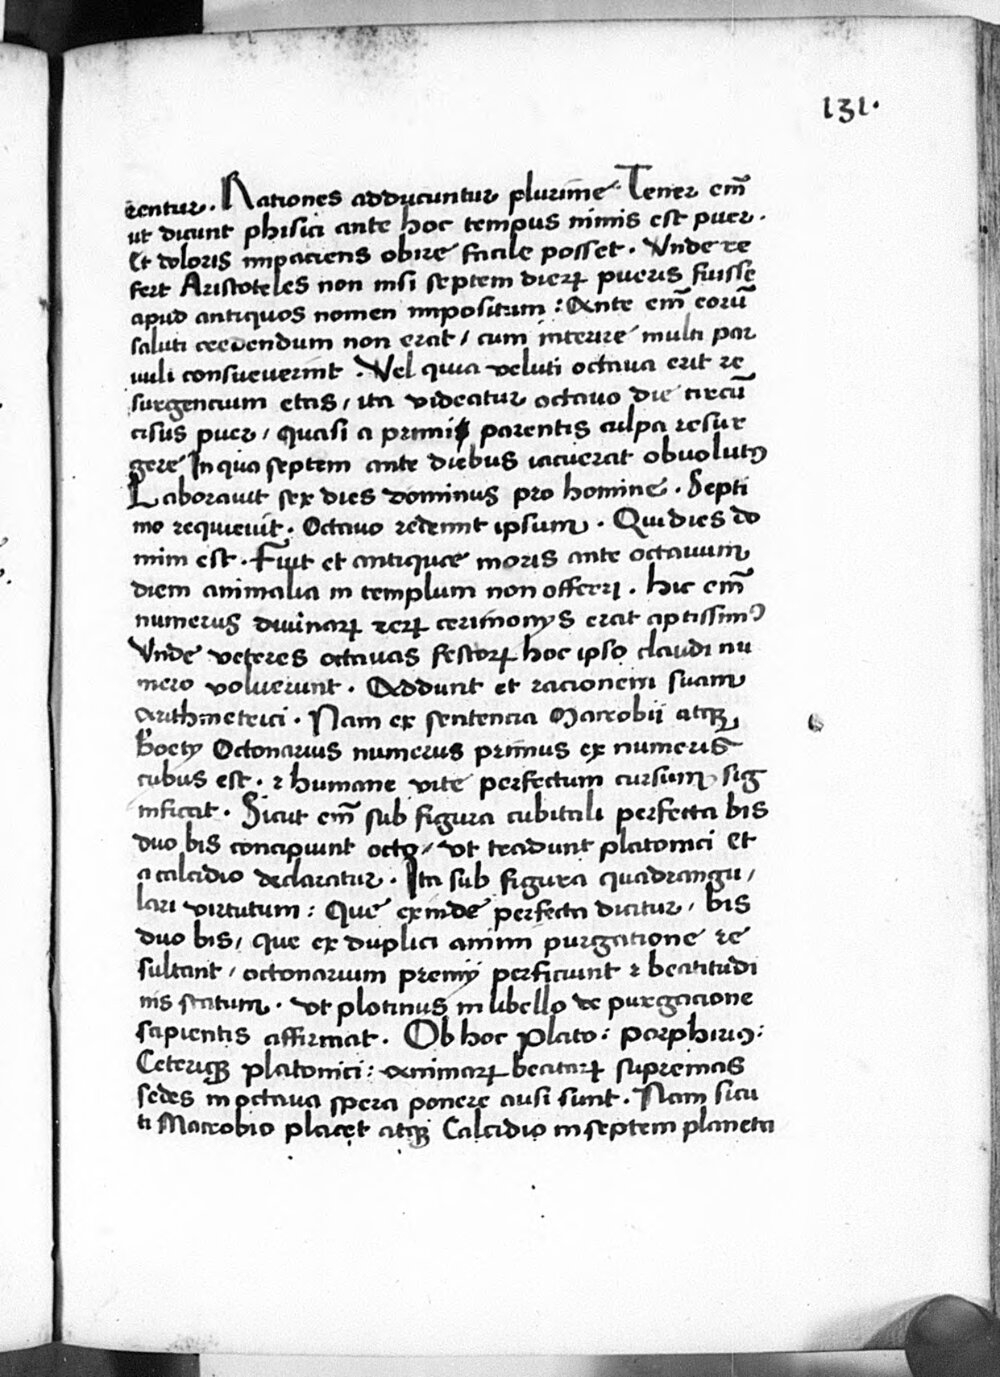 131.
rentur. Rationes adducuntur plurime. Tener em̃
ut dicunt phisici ante hoc tempus nimis est puer.
Et doloris impaciens obire facile posset. Vnde re
fert Aristoteles non nisi septem dierꝝ pueris fuisse
apud antiquos nomen impositum: Ante em̃ eorũ
saluti credendum non erat / cum interire multi par
uuli consueuerint. Vel quia veluti octaua erit re
surgencium etas / ita videatur octauo die circũ
cisus puer / quasi a primi parentis culpa resur
gere In qua septem ante diebus iacuerat obuolutꝰ
Laborauit sex dies dominus pro homine. Septi
mo requieuit. Octauo redemit ipsum. Qui dies do
mini est. Fuit et antiquae moris ante octauum
diem animalia in templum non offerri. Hic em̃
numerus diuinarꝝ rerꝝ cerimonijs erat aptissimꝰ
Vnde veteres octauas festorꝝ hoc ipso claudi nu
mero voluerunt. Addunt et racionem suam
arithmetrici. Nam ex sentencia Macrobii atqꝫ
Boetij Octonarius numerus primus ex numeris
cubus est. ⁊ humane vite perfectum cursum sig
nificat. Sicut em̃ sub figura cubitali perfecta bis
duo bis concipiunt octo / vt tradunt platonici et
a calcidio declaratur. Ita sub figura quadrangu /
lari virtutum: Que exinde perfecta dicitur / bis
duo bis / que ex duplici animi purgatione re
sultant / octonarium premij perficiunt ⁊ beatitudi
nis statum. vt plotinus in libello de purgacione
sapientis affirmat. Ob hoc Plato: porphiriꝰ:
Ceteriqꝫ platonici: animarꝝ beatarꝝ supremas
sedes in octaua spera ponere ausi sunt. Nam sicu
ti Macrobio placet atqꝫ Calcidio in septem planeta